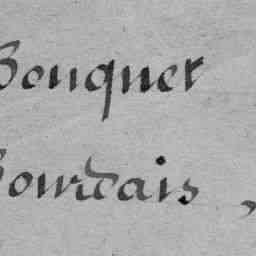 Bouquet
Bourdais,